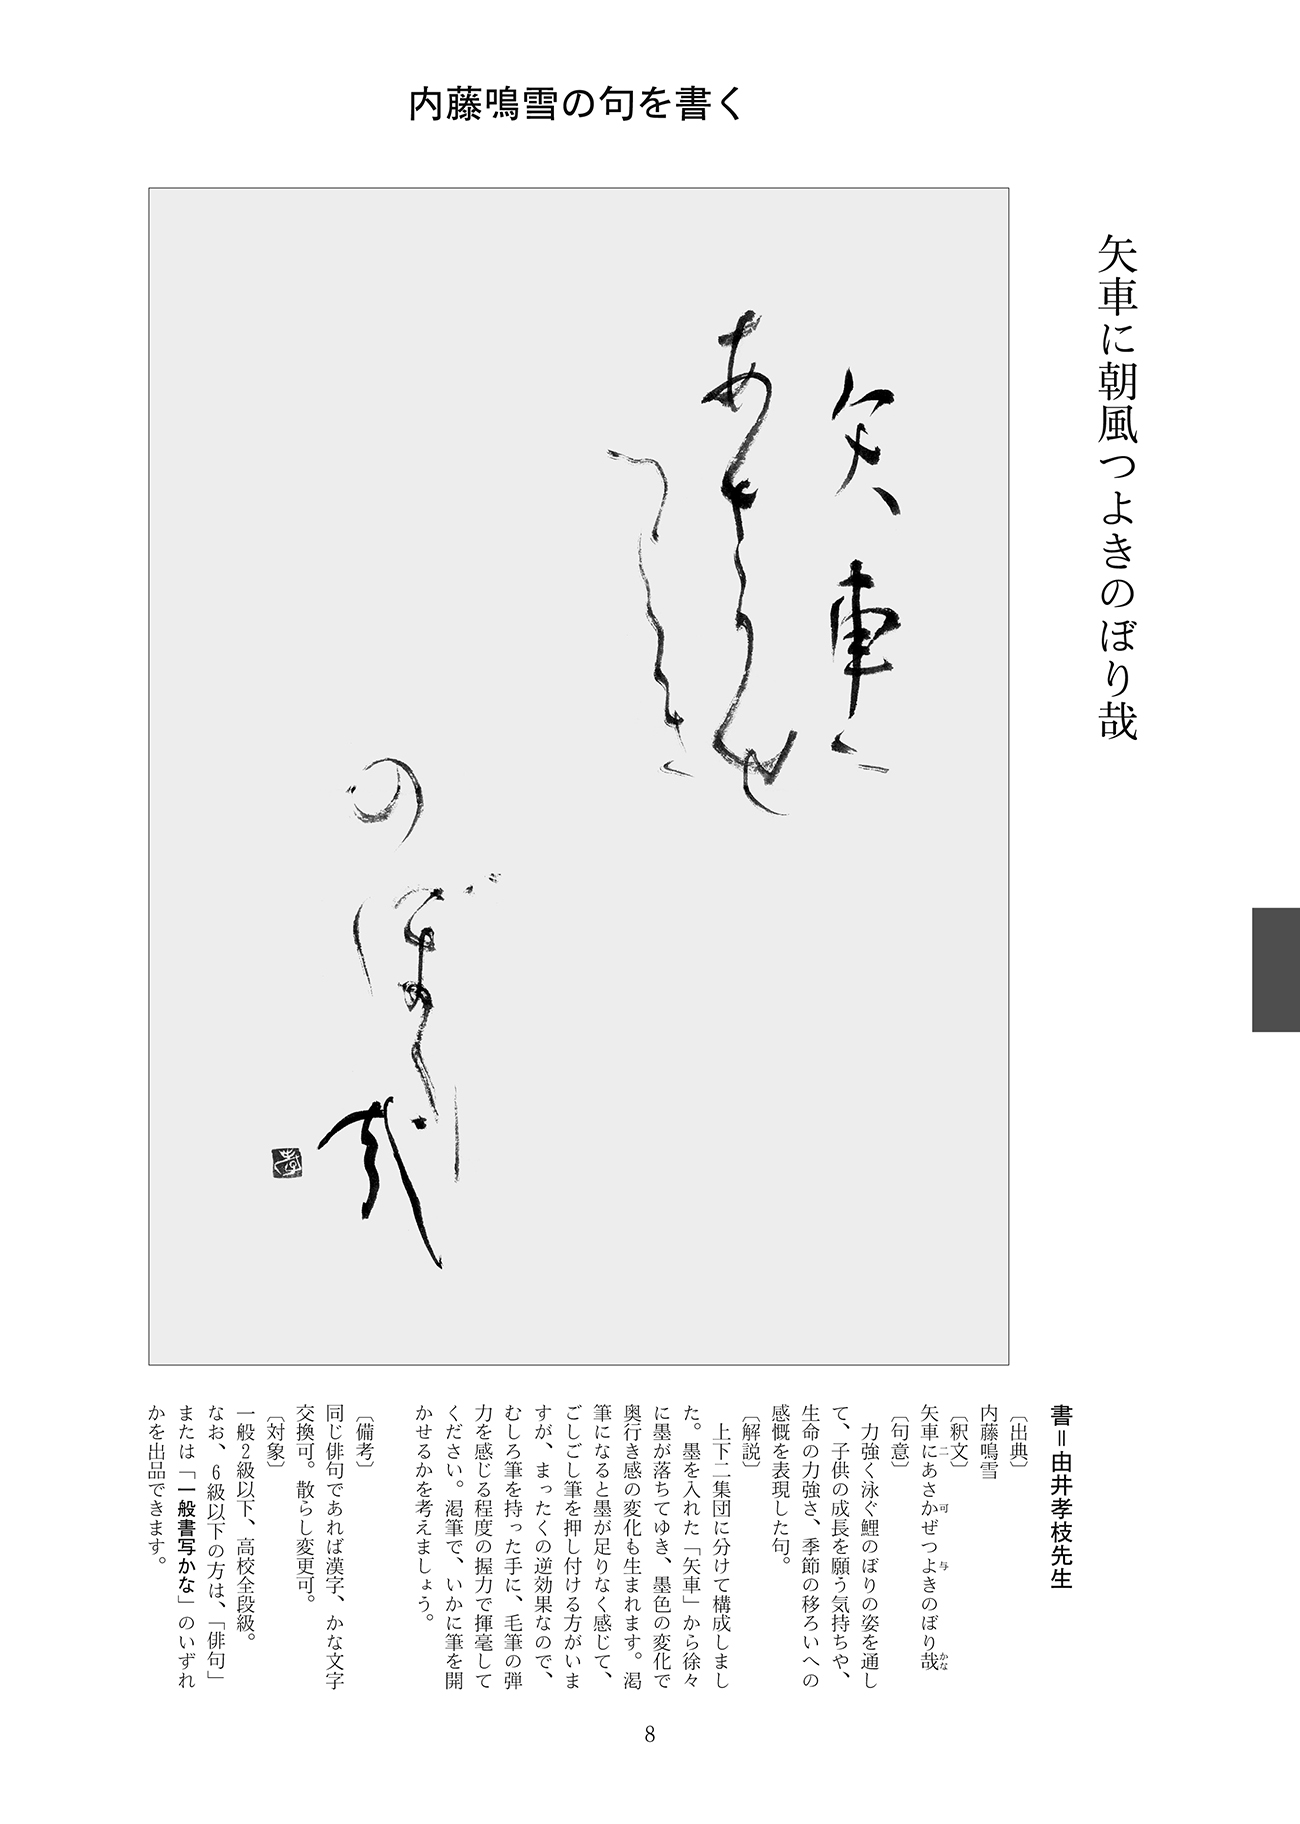 内藤鳴雪の句を書く
矢車に朝風つよきのぼり哉
矢車二
あさ可ぜ
つ与き
のぼり
哉
孝
書＝由井孝枝先生
〔出典〕
内藤鳴雪
〔釈文〕
矢車にあさかぜつよきのぼり哉
二　可　与　かな
〔句意〕
力強く泳ぐ鯉のぼりの姿を通し
て、子供の成長を願う気持ちや、
生命の力強さ、季節の移ろいへの
感慨を表現した句。
〔解説〕
上下二集団に分けて構成しまし
た。墨を入れた「矢車」から徐々
に墨が落ちてゆき、墨色の変化で
奥行き感の変化も生まれます。渇
筆になると墨が足りなく感じて、
ごしごし筆を押し付ける方がいま
すが、まったくの逆効果なので、
むしろ筆を持った手に、毛筆の弾
力を感じる程度の握力で揮毫して
ください。渇筆で、いかに筆を開
かせるかを考えましょう。
〔備考〕
同じ俳句であれば漢字、かな文字
交換可。散らし変更可。
〔対象〕
一般2級以下、高校全段級。
なお、6級以下の方は、「俳句」
または「一般書写かな」のいずれ
かを出品できます。
8